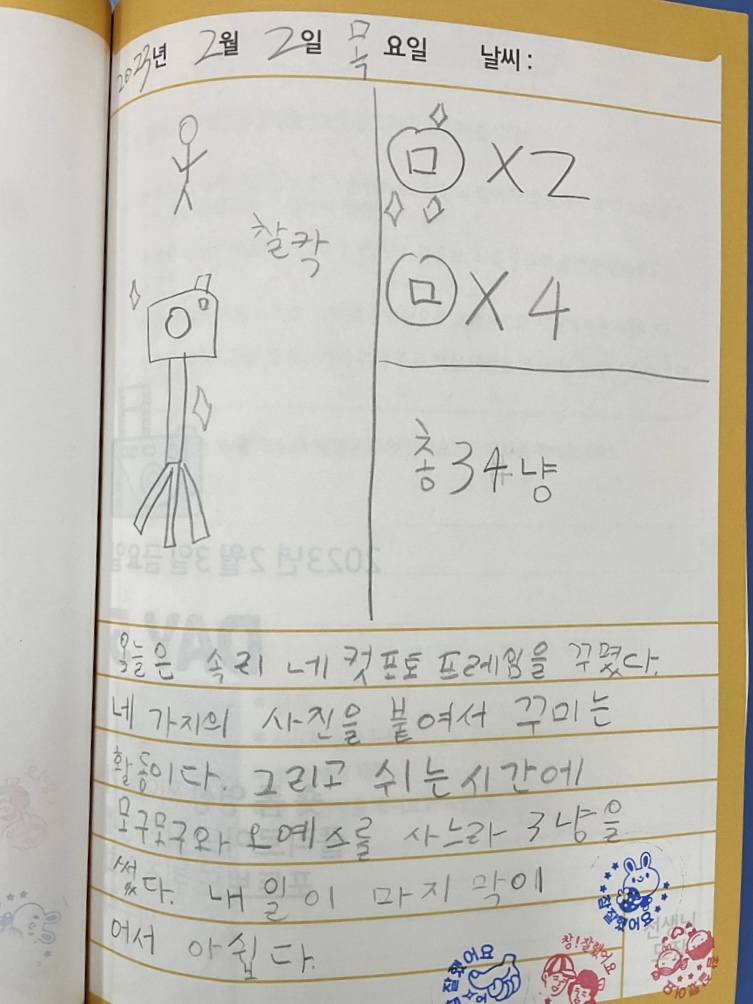 2023년 2월 2일 목요일 날씨:
찰칵
ㅁ X2
ㅁ X4
총 34냥
오늘은 속리 네 컷포토 프레임을 꾸몄다.
네 가지의 사진을 붙여서 꾸미는
활동이다. 그리고 쉬는시간에
모구모구와 오예스를 사느라 3냥을
썼다. 내일이 마지막이
어서 아쉽다.
참잘했어요
참!잘했어요
선생님